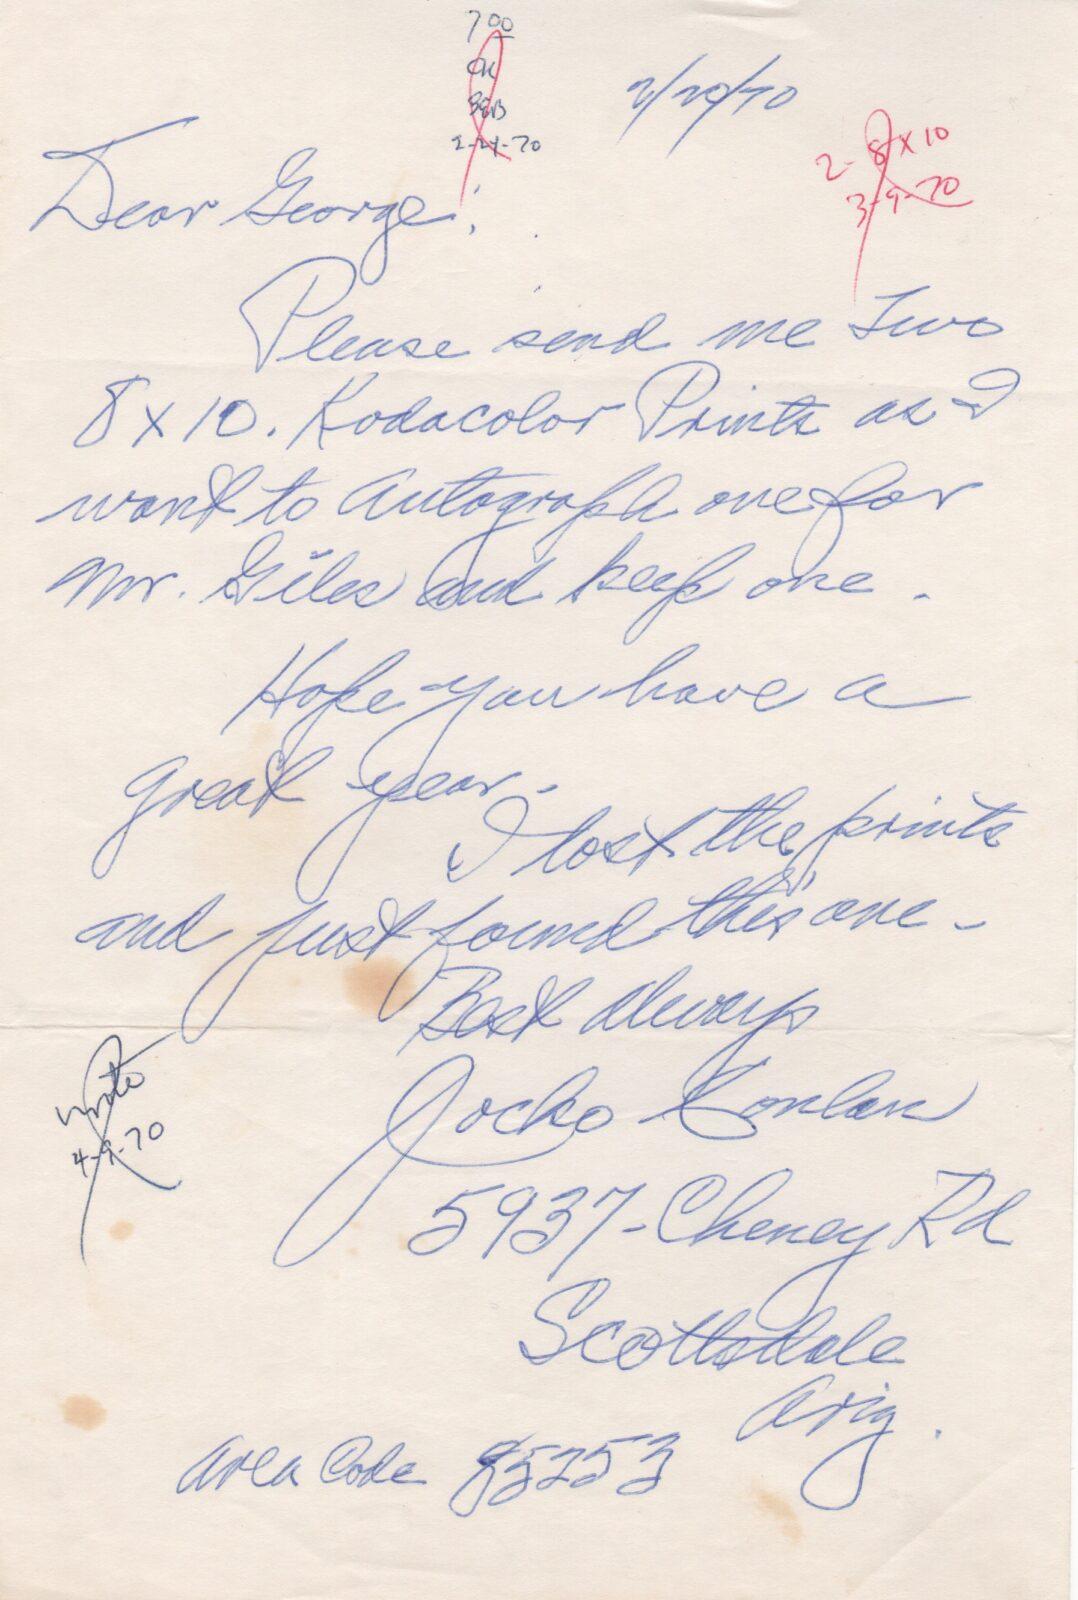 7 00
OK
GEB
2-24-70
2/20/70
2-8x10
3-9-70
Dear George:
Please send me Two
8x10. Kodacolor Prints as I
want to Autograph one for
Mr. Giles and keep one.
Hope you have a
great year.
I lost the prints
and just found this one-
Best always
Jocko Conlan
5937-Cheney Rd
Scottsdale
Ariz.
Area Code 85253
wrote
4-9-70